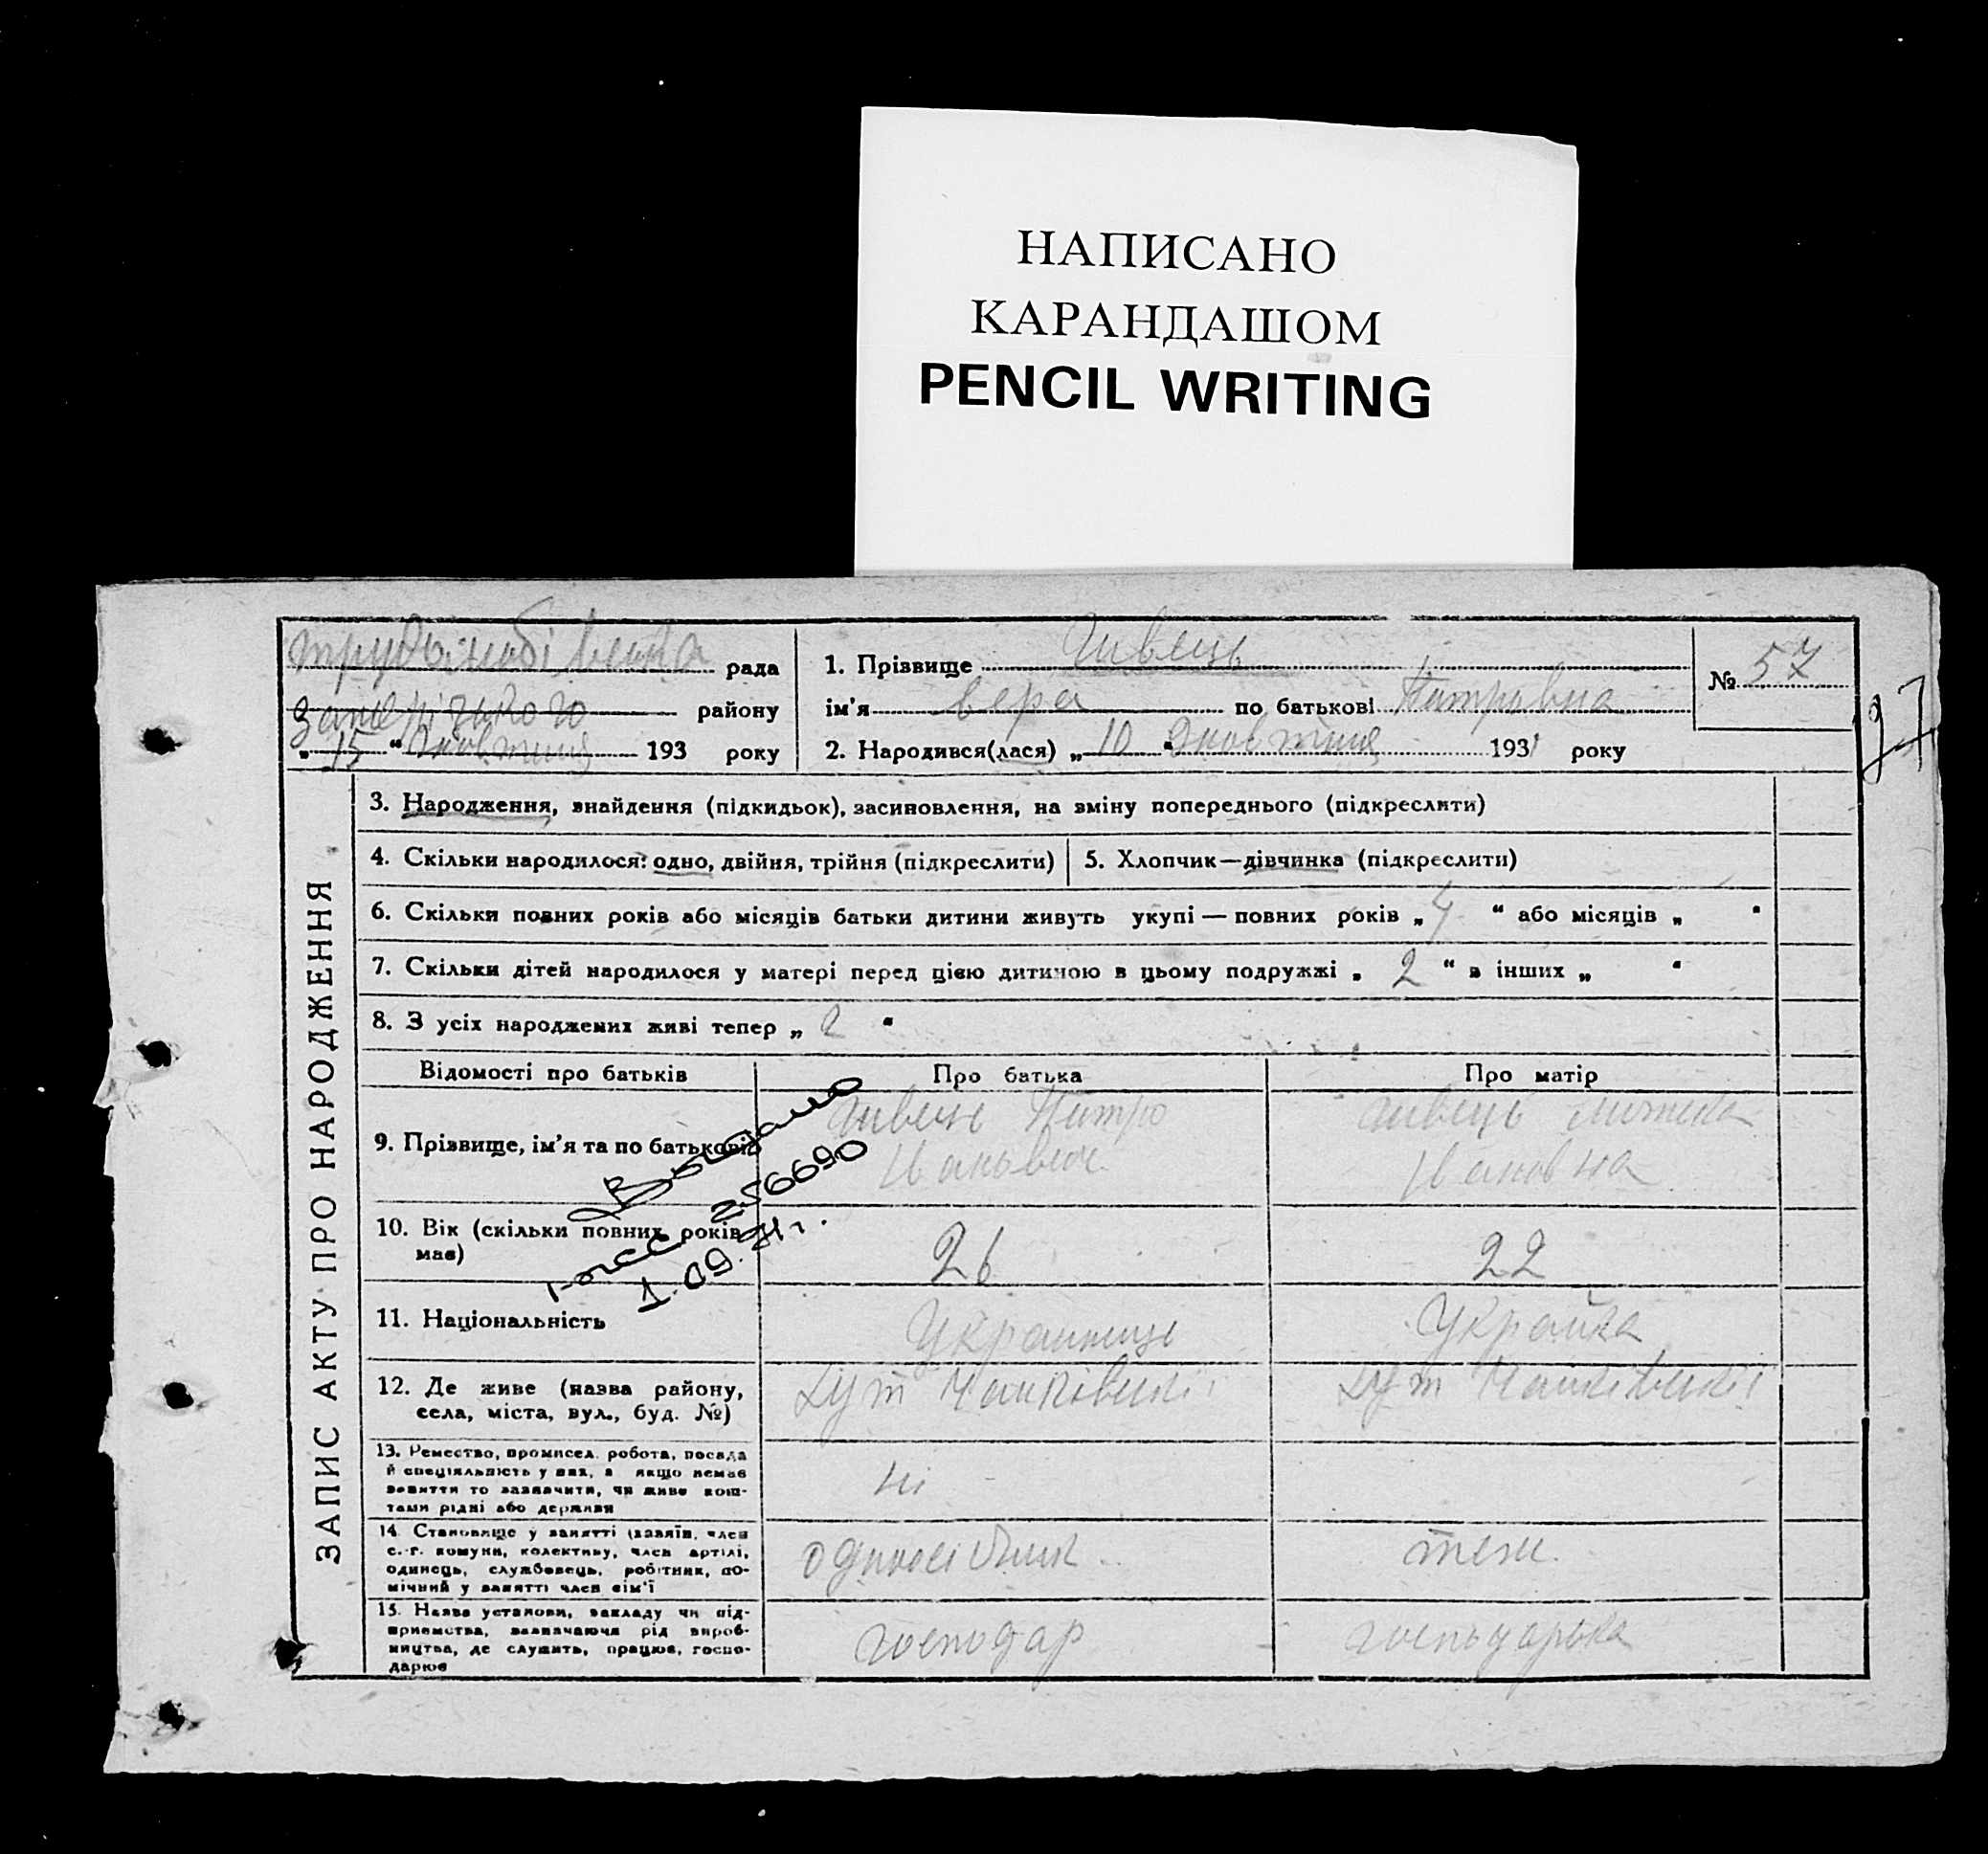 НАПИСАНО
КАРАНДАШОМ
PENCIL WRITING
рада
району
„ 15 “ Жовтня 193 року
1. Прізвище Швець
ім’я Вера по батькові Питровна
2. Народився(лася) „ 10 “ Жовтня 1931 року
№ 57
97
ЗАПИС АКТУ ПРО НАРОДЖЕННЯ
3. Народження, знайдення (підкидьок), засиновлення, на зміну попереднього (підкреслити)
4. Скільки народилося: одно, двійня, трійня (підкреслити)
5. Хлопчик—дівчинка (підкреслити)
6. Скільки повних років або місяців батьки дитини живуть укупі — повних років „ 4 “ або місяців „ “
7. Скільки дітей народилося у матері перед цією дитиною в цьому подружжі „ 2 “ в інших „ “
8. З усіх народжених живі тепер „ 2 “
Відомості про батьків
Про батька
Про матір
9. Прізвище, ім’я та по батькові
Швець Питро
Швець
10. Вік (скільки повних років має)
26
22
256690
1.09.
11. Національність
Украинець
Украйка
12. Де живе (назва району,
села, міста, вул., буд. №)
хут
хут
13. Ремество, промисел, робота, посада
й спеціяльність у них, а якщо немає
заняття то зазначити, чи живе кош-
тами рідні або держави
ні
14. Становище у занятті (хазяїн, член
с.-г. комуни, колективу, член артілі,
одинець, службовець, робітник, по-
мічний у занятті член сім’ї
одноосібник
теж
15. Назва установи, закладу чи під-
приємства, зазначаючи рід вироб-
ництва, де служить, працює, госпо-
дарює
господар
господарька